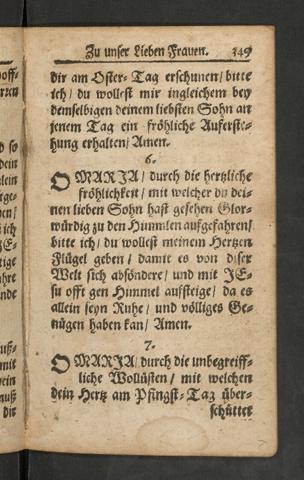 Zu unser Lieben Frauen. 349
dir am Oster-Tag erschunen/ bitte
ich/ du wollest mir ingleichem bey
demselbigen deinem liebsten Sohn an
jenem Tag ein fröhliche Auferste-
hung erhalten/ Amen.
6.
O MARIA/ durch die hertzliche
fröhlichkeit/ mit welcher du dei-
nen lieben Sohn hast gesehen Glor-
würdig zu den Himmlen aufgefahren/
bitte ich/ du wollest meinem Hertzen
Flügel geben/ damit es von diser
Welt sich absöndere/ und mit JE-
su offt gen Himmel aufsteige/ da es
allein seyn Ruhe/ und völliges Ge-
nügen haben kan/ Amen.
7.
O MARIA/ durch die unbegreiff-
liche Wollüsten/ mit welchen
dein Hertz am Pfingst-Tag über-
schüttet